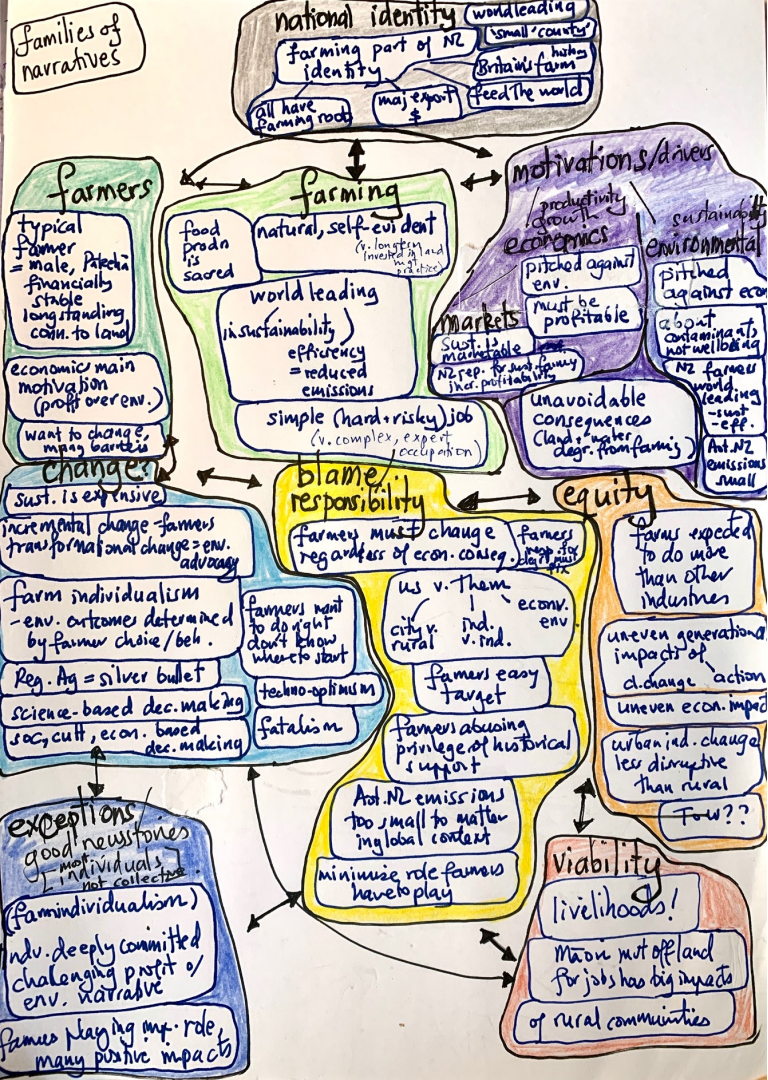 families of
narratives
national identity
farming part of NZ
identity
all have
farming roots
maj export
$
world leading
'small' county'
history
Britain's farm
feed the world
farmers
typical
farmer
= male, Pakeha
financially
stable
longstanding
conn. to land
economic main
motivation
(profit over env.)
want to change,
many barriers
farming
food
prodn
is
sacred
natural, self-evident
(v. longterm
invested in land
mgt
practice)
world leading
in sustainability
efficiency
= reduced
emissions
simple (hard + risky) job
(v. complex, expert
occupation)
motivations/drivers
productivity
growth
economics
pitched against
env.
must be
profitable
markets
Sust. is
marketable
NZ rep. for sust. farming
incr. profitability
sustainability
environmental
pitched
against econ
about
contaminants
not wellbeing
NZ farmers
world
leading
- sust
- eff.
Aot. NZ
emissions
small
unavoidable
consequences
(land + water
degr. from farming)
change?
sust. is expensive
incremental change - farmers
transformational change = env.
advocacy
farm individualism
- env. outcomes determined
by farmer choice/beh.
Reg. Ag = silver bullet
science-based dec. making
soc, cult, econ. based
dec. making
farmers want
to do right
don't know
where to start
techno-optimism
fatalism
blame/
responsibility
farmers must change
regardless of econ. conseq.
farmers
resp. for
degr. must
fix
us v. Them
city v.
rural
ind.
v. ind.
econ v.
env
famers easy
target
farmers abusing
privilege of historical
support
Aot. NZ emissions
too small to matter
in global context
minimise role farmers
have to play
equity
farms expected
to do more
than other
industries
uneven generational
impacts of
cl. change action
uneven econ. impac
urban ind. change
less disruptive
than rural
TOW??
exceptions/
good news stories
most
[individuals]
not collective
(farm individualism)
indv. deeply committed
challenging profit o/
env. narrative
farmers playing imp. role,
many positive impacts
viability
livelihoods!
Māori mvt off land
for jobs has big impacts
of rural communities